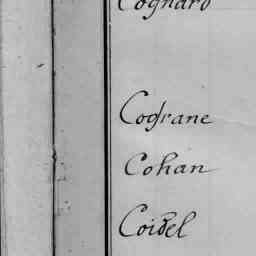 Cognard
Cograne
Cohan
Coidel